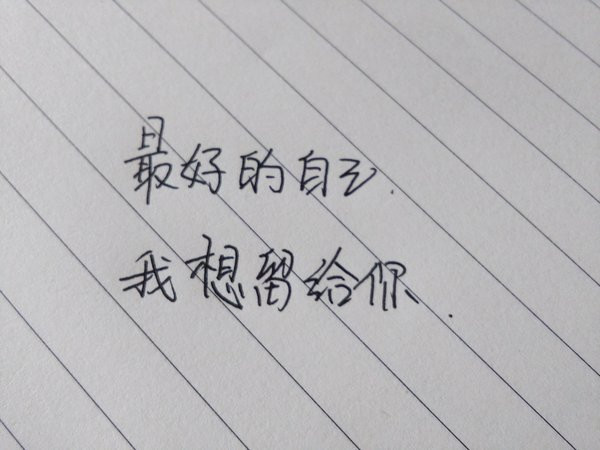 最好的自己.
我想留给你.